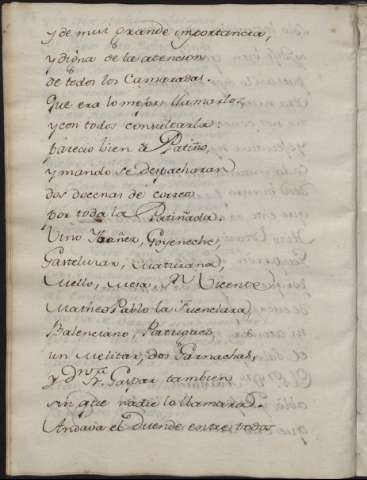 y de muy grande importancia,
y digna de la atencion
de todos los Camaradas.
Que era lo mejor llamarlos,
y con todos consultarla:
pareciò bien à Patiño,
y mandò se despacharan
dos docenas de correos
por toda la Patiñada.
Vino Ibañez, Goyeneche,
Gasteluzar, Maturana,
Mello, Mesa, Dn. Vicente
Matheo Pablo la Fuenclara,
Balenciano, Patiques,
un Melitar, dos Garnachas,
y Dn. Gaspar tambien
sin que nadie lo llamara.
Andava el Duende entre todos